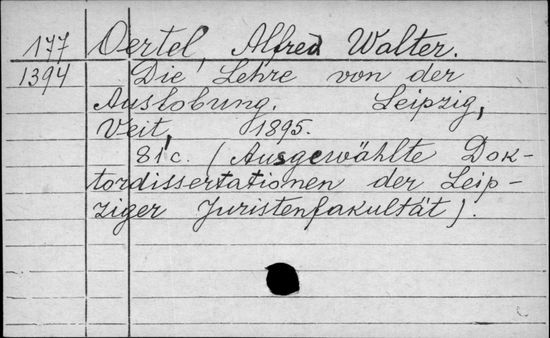 177 Oertel, Alfred Walter.
1394 Die Lehre von der
Auslobung. Leipzig,
Veit, 1895.
81 c. (Ausgewählte Dok-
tordissertationen der Leip-
ziger Juristenfakultät).